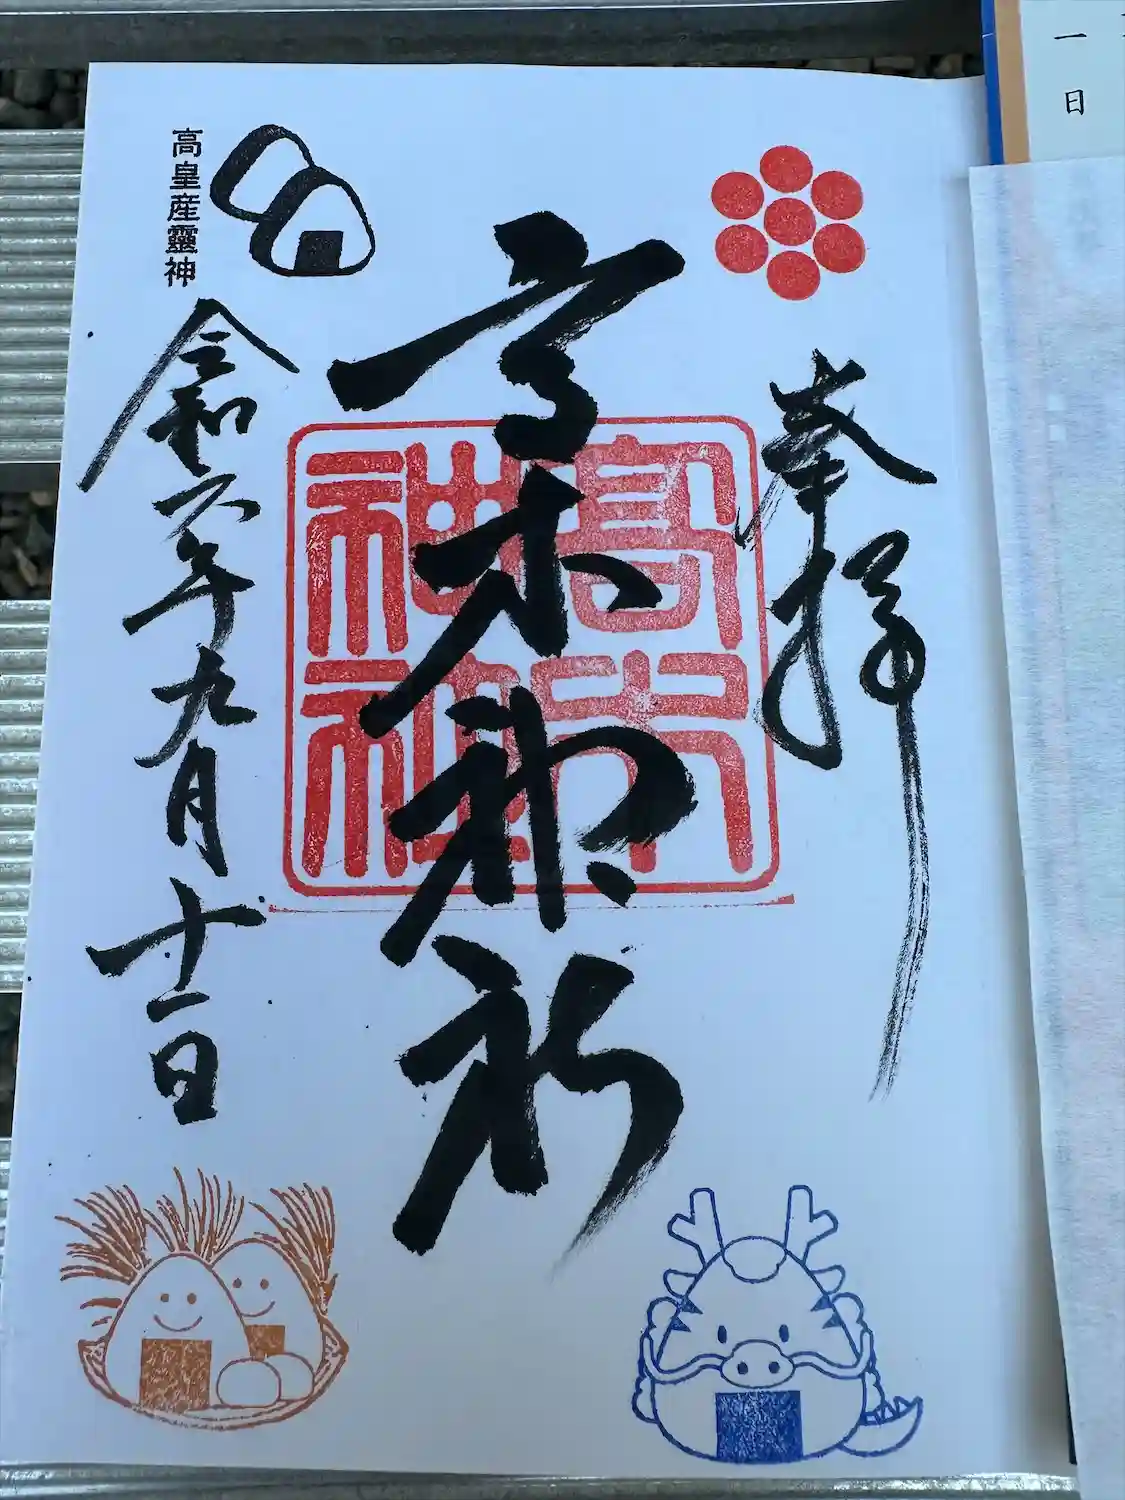 一日
奉拝
高木神社
高木神社
高皇産靈神
令和六年九月十一日